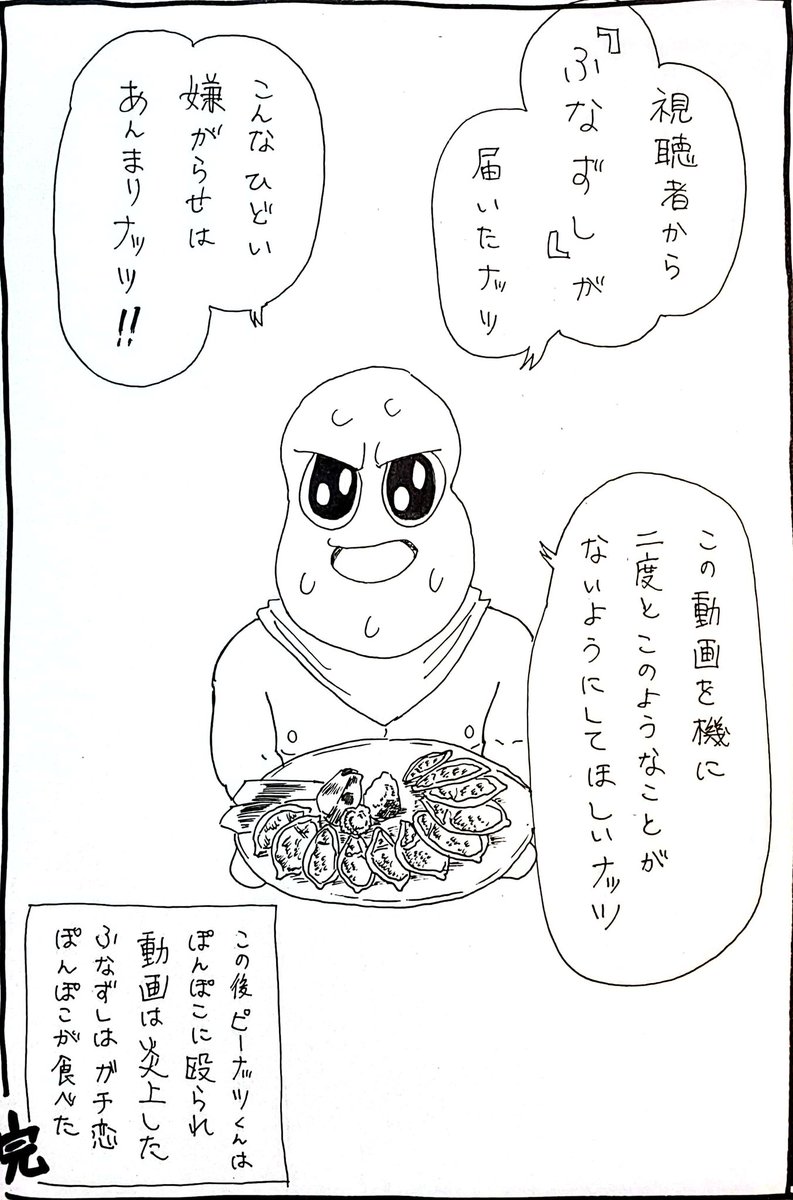 視聴者から
『ふなずし』が
届いたナッツ
こんなひどい
嫌がらせは
あんまりナッツ!!
この動画を機に
二度とこのようなことが
ないようにしてほしいナッツ
この後ピーナッツくんは
ぽんぽこに殴られ
動画は炎上した
ふなずしはガチ恋
ぽんぽこが食べた
完